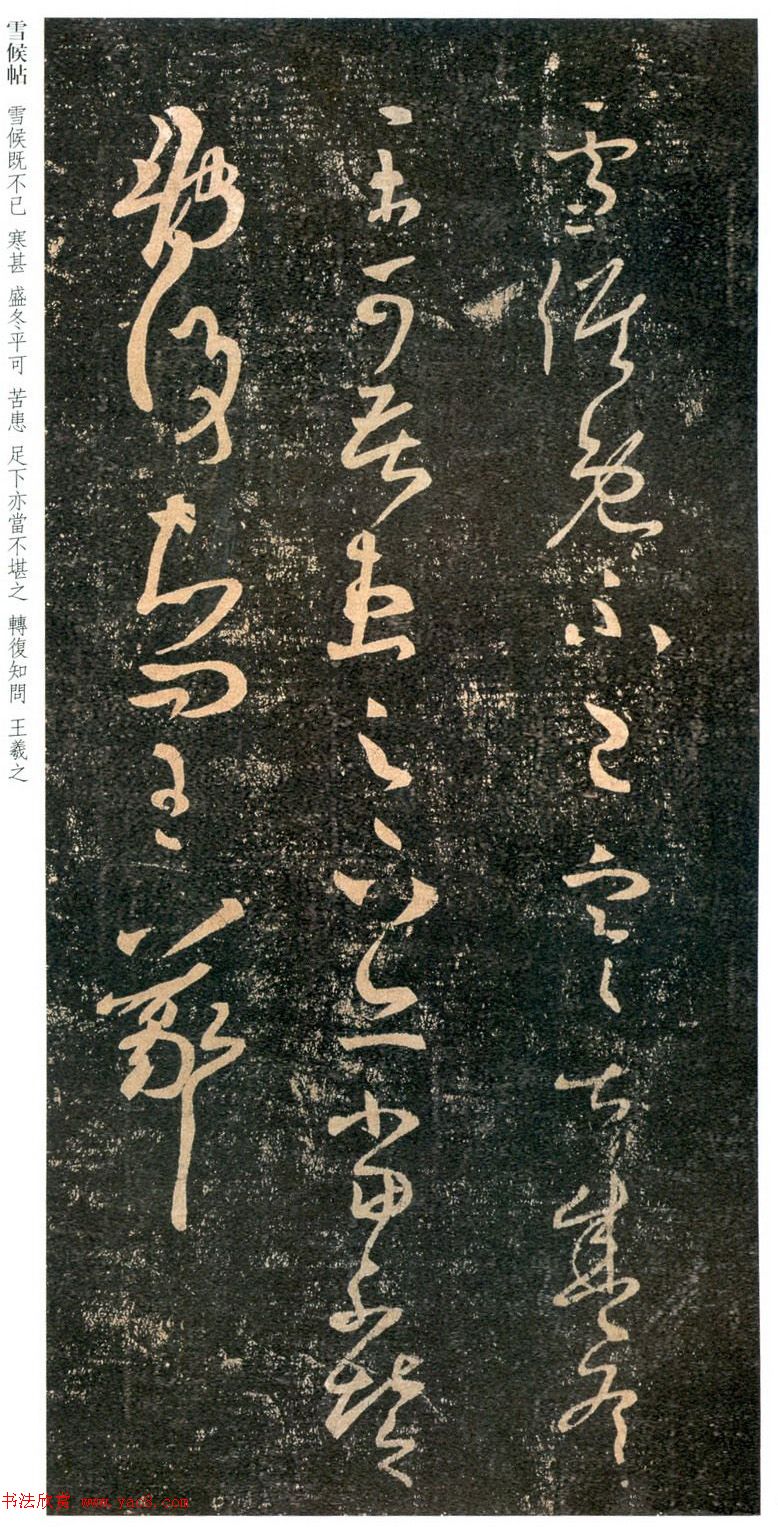 雪候既不已寒甚盛冬
平可苦患足下亦當不堪之
轉復知問王羲之
雪候帖 雪候既不已 寒甚 盛冬平可 苦患 足下亦當不堪之 轉復知問 王羲之
书法欣赏 www.yac8.com